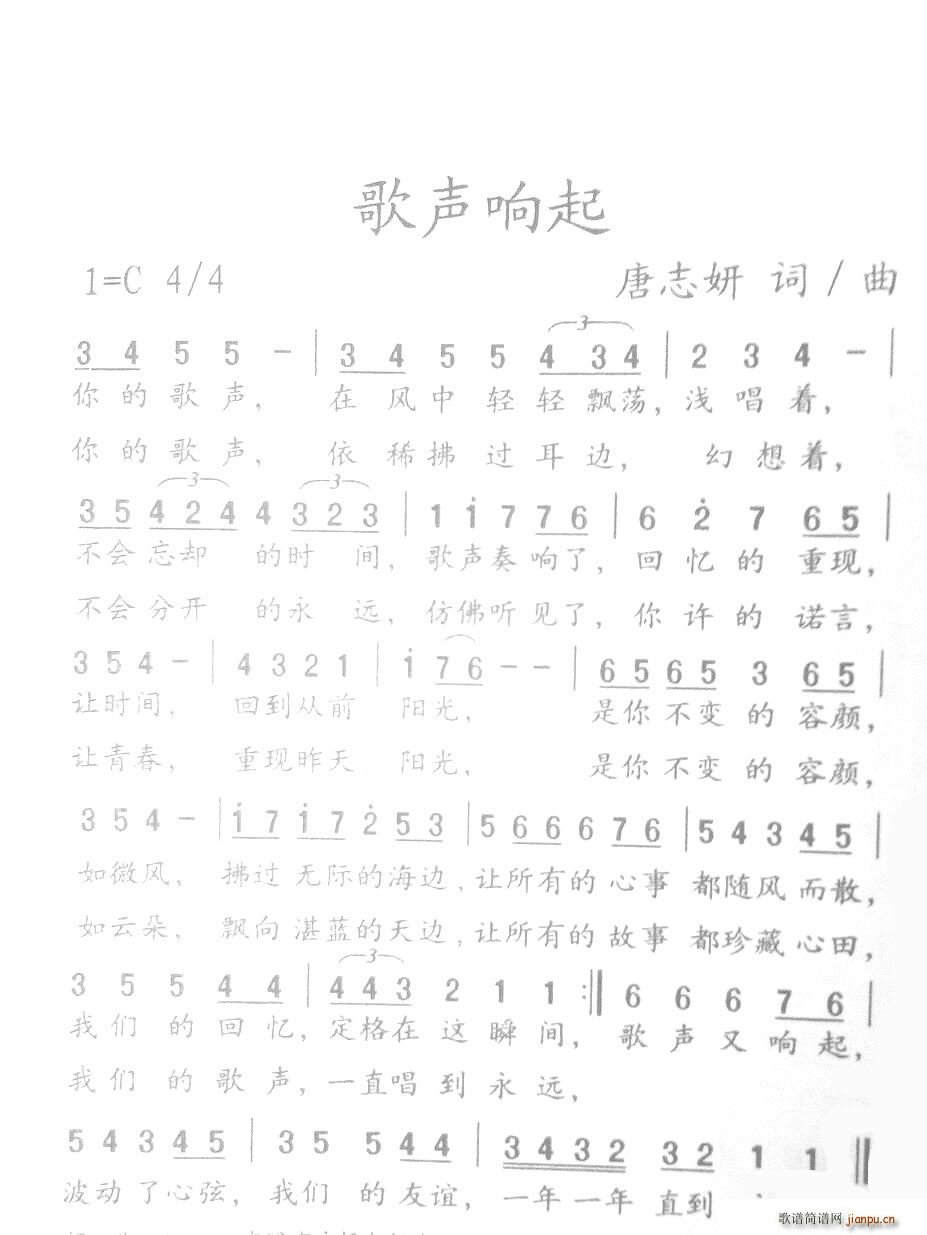 歌声响起
1=C 4/4 唐志妍 词 / 曲
3 4 5 5 - | 3 4 5 5 4 3 4 | 2 3 4 - |
你的歌声, 在风中轻轻飘荡, 浅唱着,
你的歌声, 依稀拂过耳边, 幻想着,
3 5 4 2 4 4 3 2 3 | 1 i 7 7 6 | 6 2̇ 7 6 5 |
不会忘却 的时间, 歌声奏响了, 回忆的重现,
不会分开 的永远, 仿佛听见了, 你许的诺言,
3 5 4 - | 4 3 2 1 | i 7 6 - - | 6 5 6 5 3 6 5 |
让时间, 回到从前 阳光, 是你不变的容颜,
让青春, 重现昨天 阳光, 是你不变的容颜,
3 5 4 - | i 7 i 7 2̇ 5 3 | 5 6 6 6 7 6 | 5 4 3 4 5 |
如微风, 拂过无际的海边, 让所有的心事 都随风而散,
如云朵, 飘向湛蓝的天边, 让所有的故事 都珍藏心田,
3 5 5 4 4 | 4 4 3 2 1 1 :‖ 6 6 6 7 6 |
我们的回忆, 定格在这瞬间, 歌声又响起,
我们的歌声, 一直唱到永远,
5 4 3 4 5 | 3 5 5 4 4 | 3 4 3 2 3 2 1 1 ‖
波动了心弦, 我们的友谊, 一年一年直到
歌谱简谱网 jianpu.cn